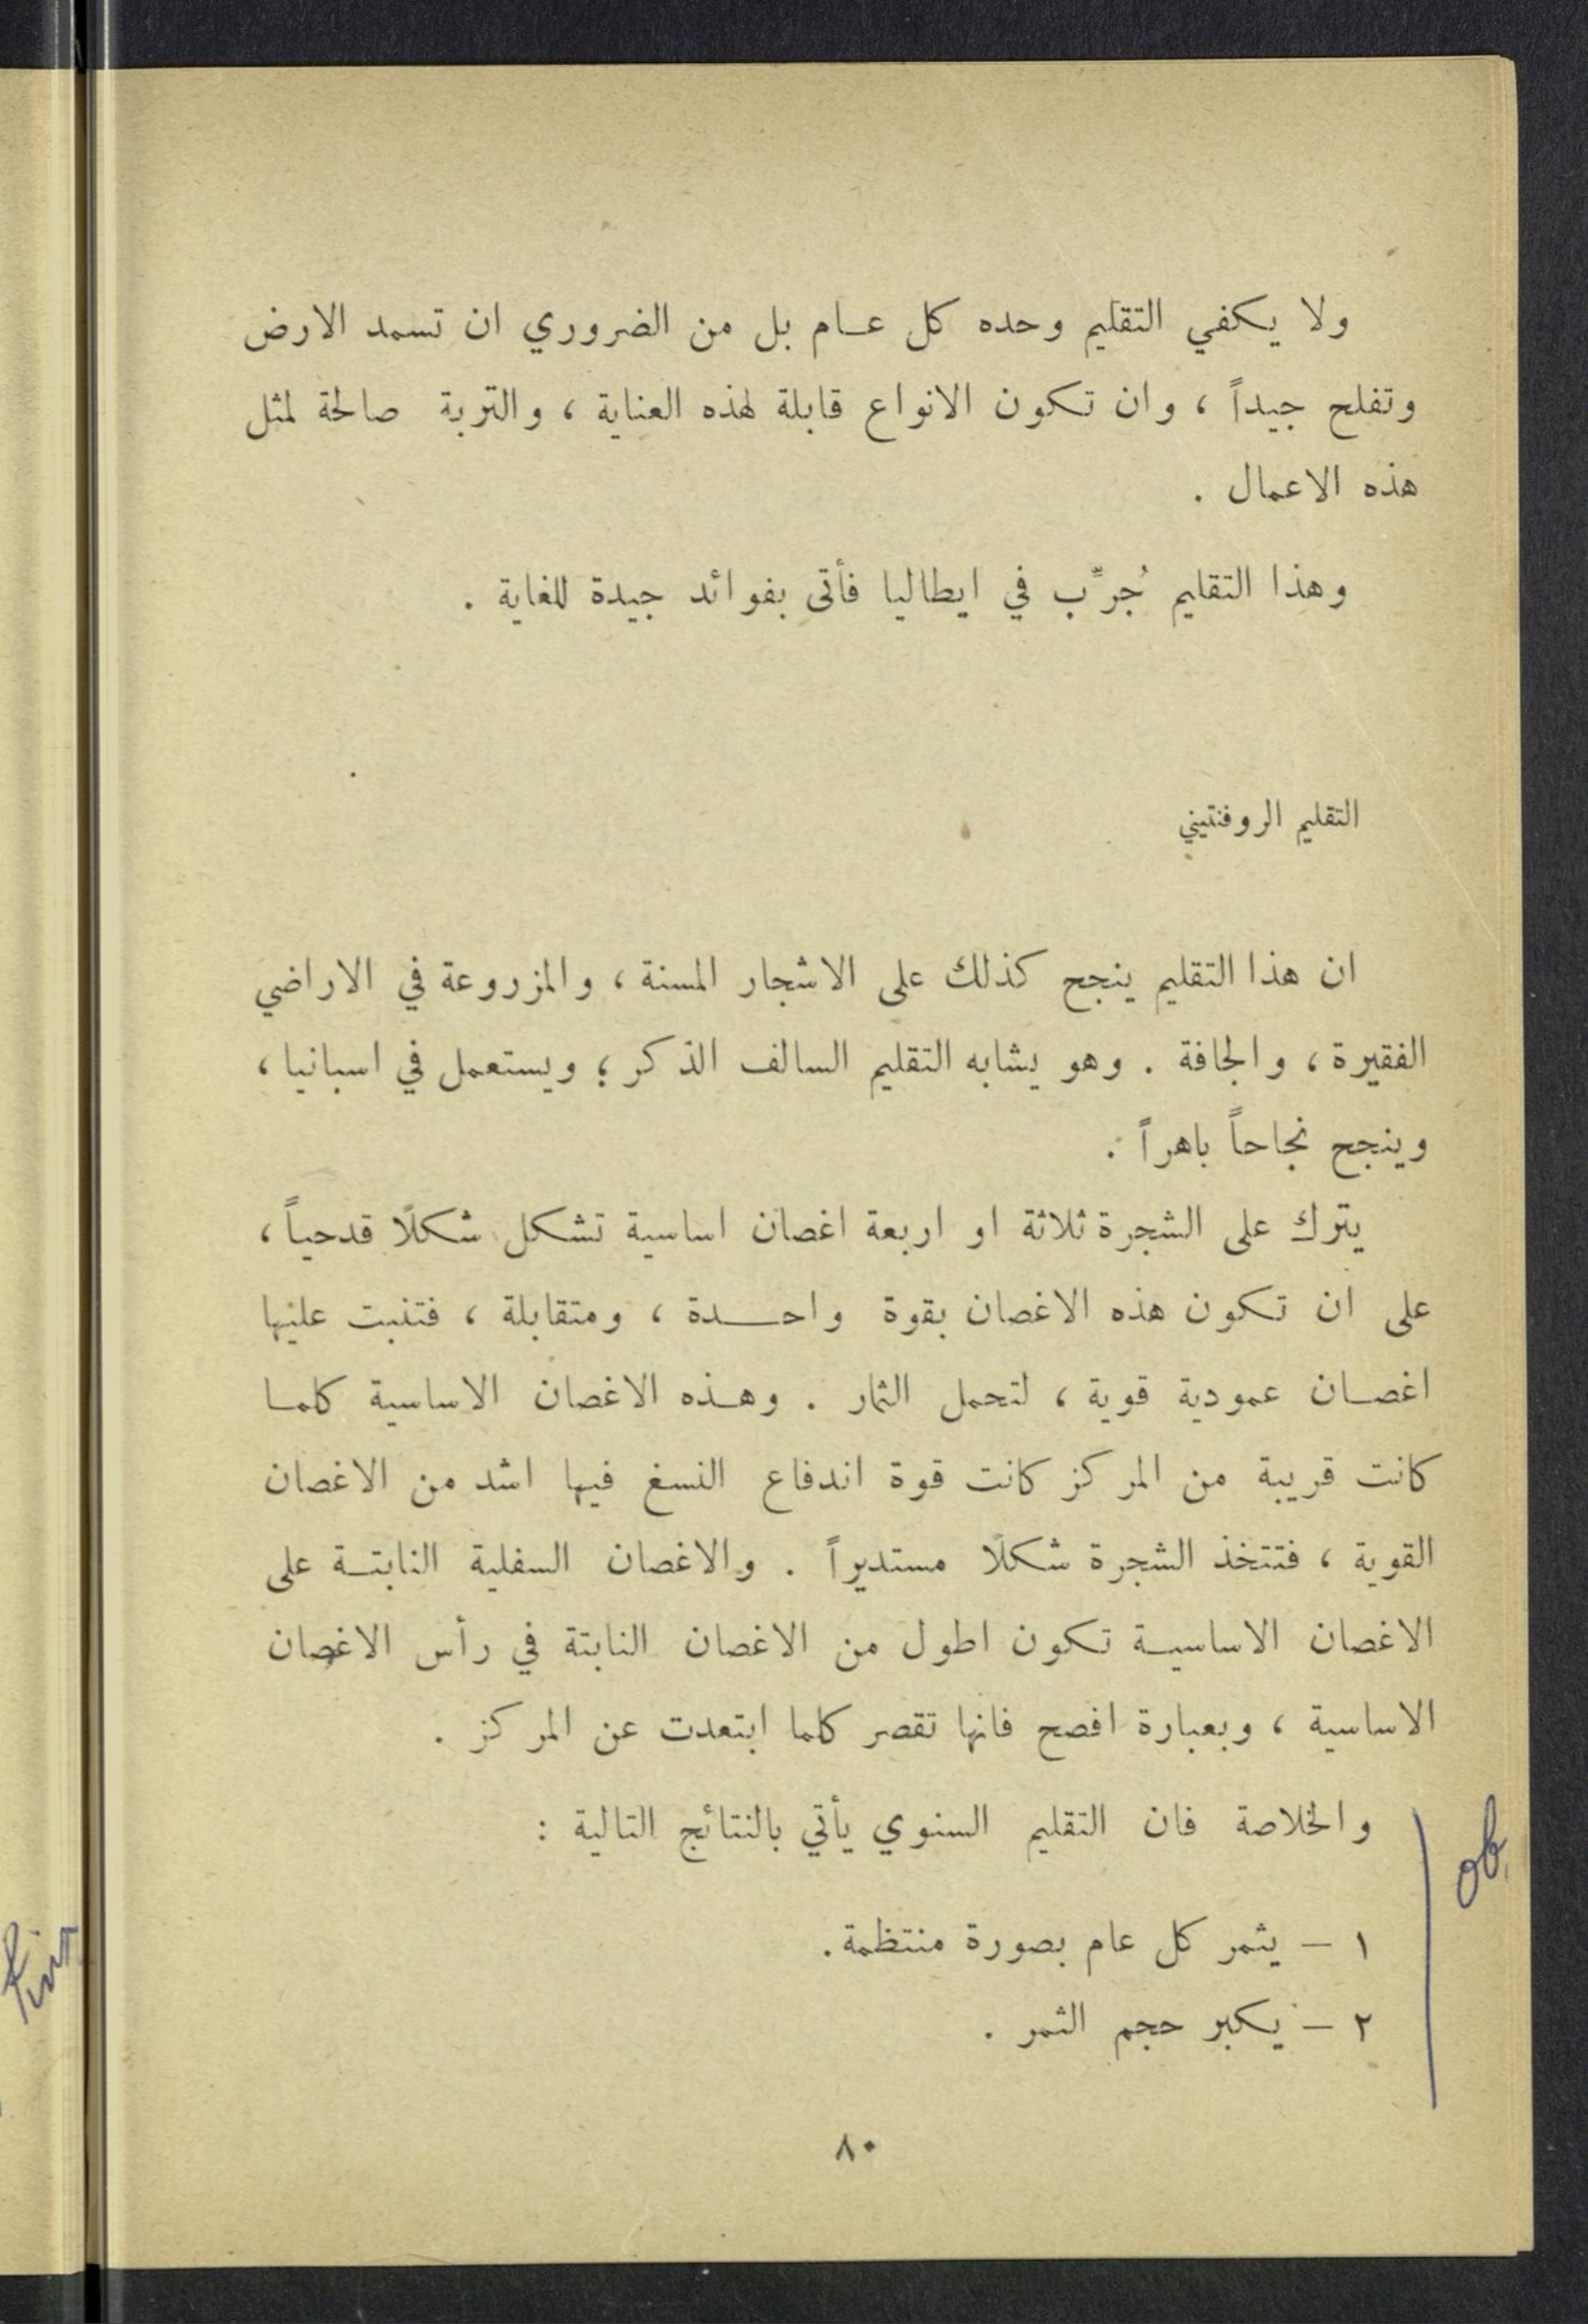 ولا يكفي التقليم وحده كل عام بل من الضروري ان تسمد الارض
وتفلح جيداً ، وان تكون الانواع قابلة لهذه العناية ، والتربة صالحة لمثل
هذه الاعمال .
وهذا التقليم جُرِّب في ايطاليا فأتى بفوائد جيدة للغاية .
التقليم الروفنتيني
ان هذا التقليم ينجح كذلك على الاشجار المسنة ، والمزروعة في الاراضي
الفقيرة ، والجافة . وهو يشابه التقليم السالف الذكر ؛ ويستعمل في اسبانيا ،
وينجح نجاحاً باهراً .
يترك على الشجرة ثلاثة او اربعة اغصان اساسية تشكل شكلًا قدحياً ،
على ان تكون هذه الاغصان بقوة واحدة ، ومتقابلة ، فتنبت عليها
اغصان عمودية قوية ، لتحمل الثمار . وهذه الاغصان الاساسية كلما
كانت قريبة من المركز كانت قوة اندفاع النسغ فيها اشد من الاغصان
القوية ، فتتخذ الشجرة شكلًا مستديراً . والاغصان السفلية النابتة على
الاغصان الاساسية تكون اطول من الاغصان النابتة في رأس الاغصان
الاساسية ، وبعبارة افصح فانها تقصر كلما ابتعدت عن المركز .
والخلاصة فان التقليم السنوي يأتي بالنتائج التالية :
١ – يثمر كل عام بصورة منتظمة .
٢ – يكبر حجم الثمر .
٨٠